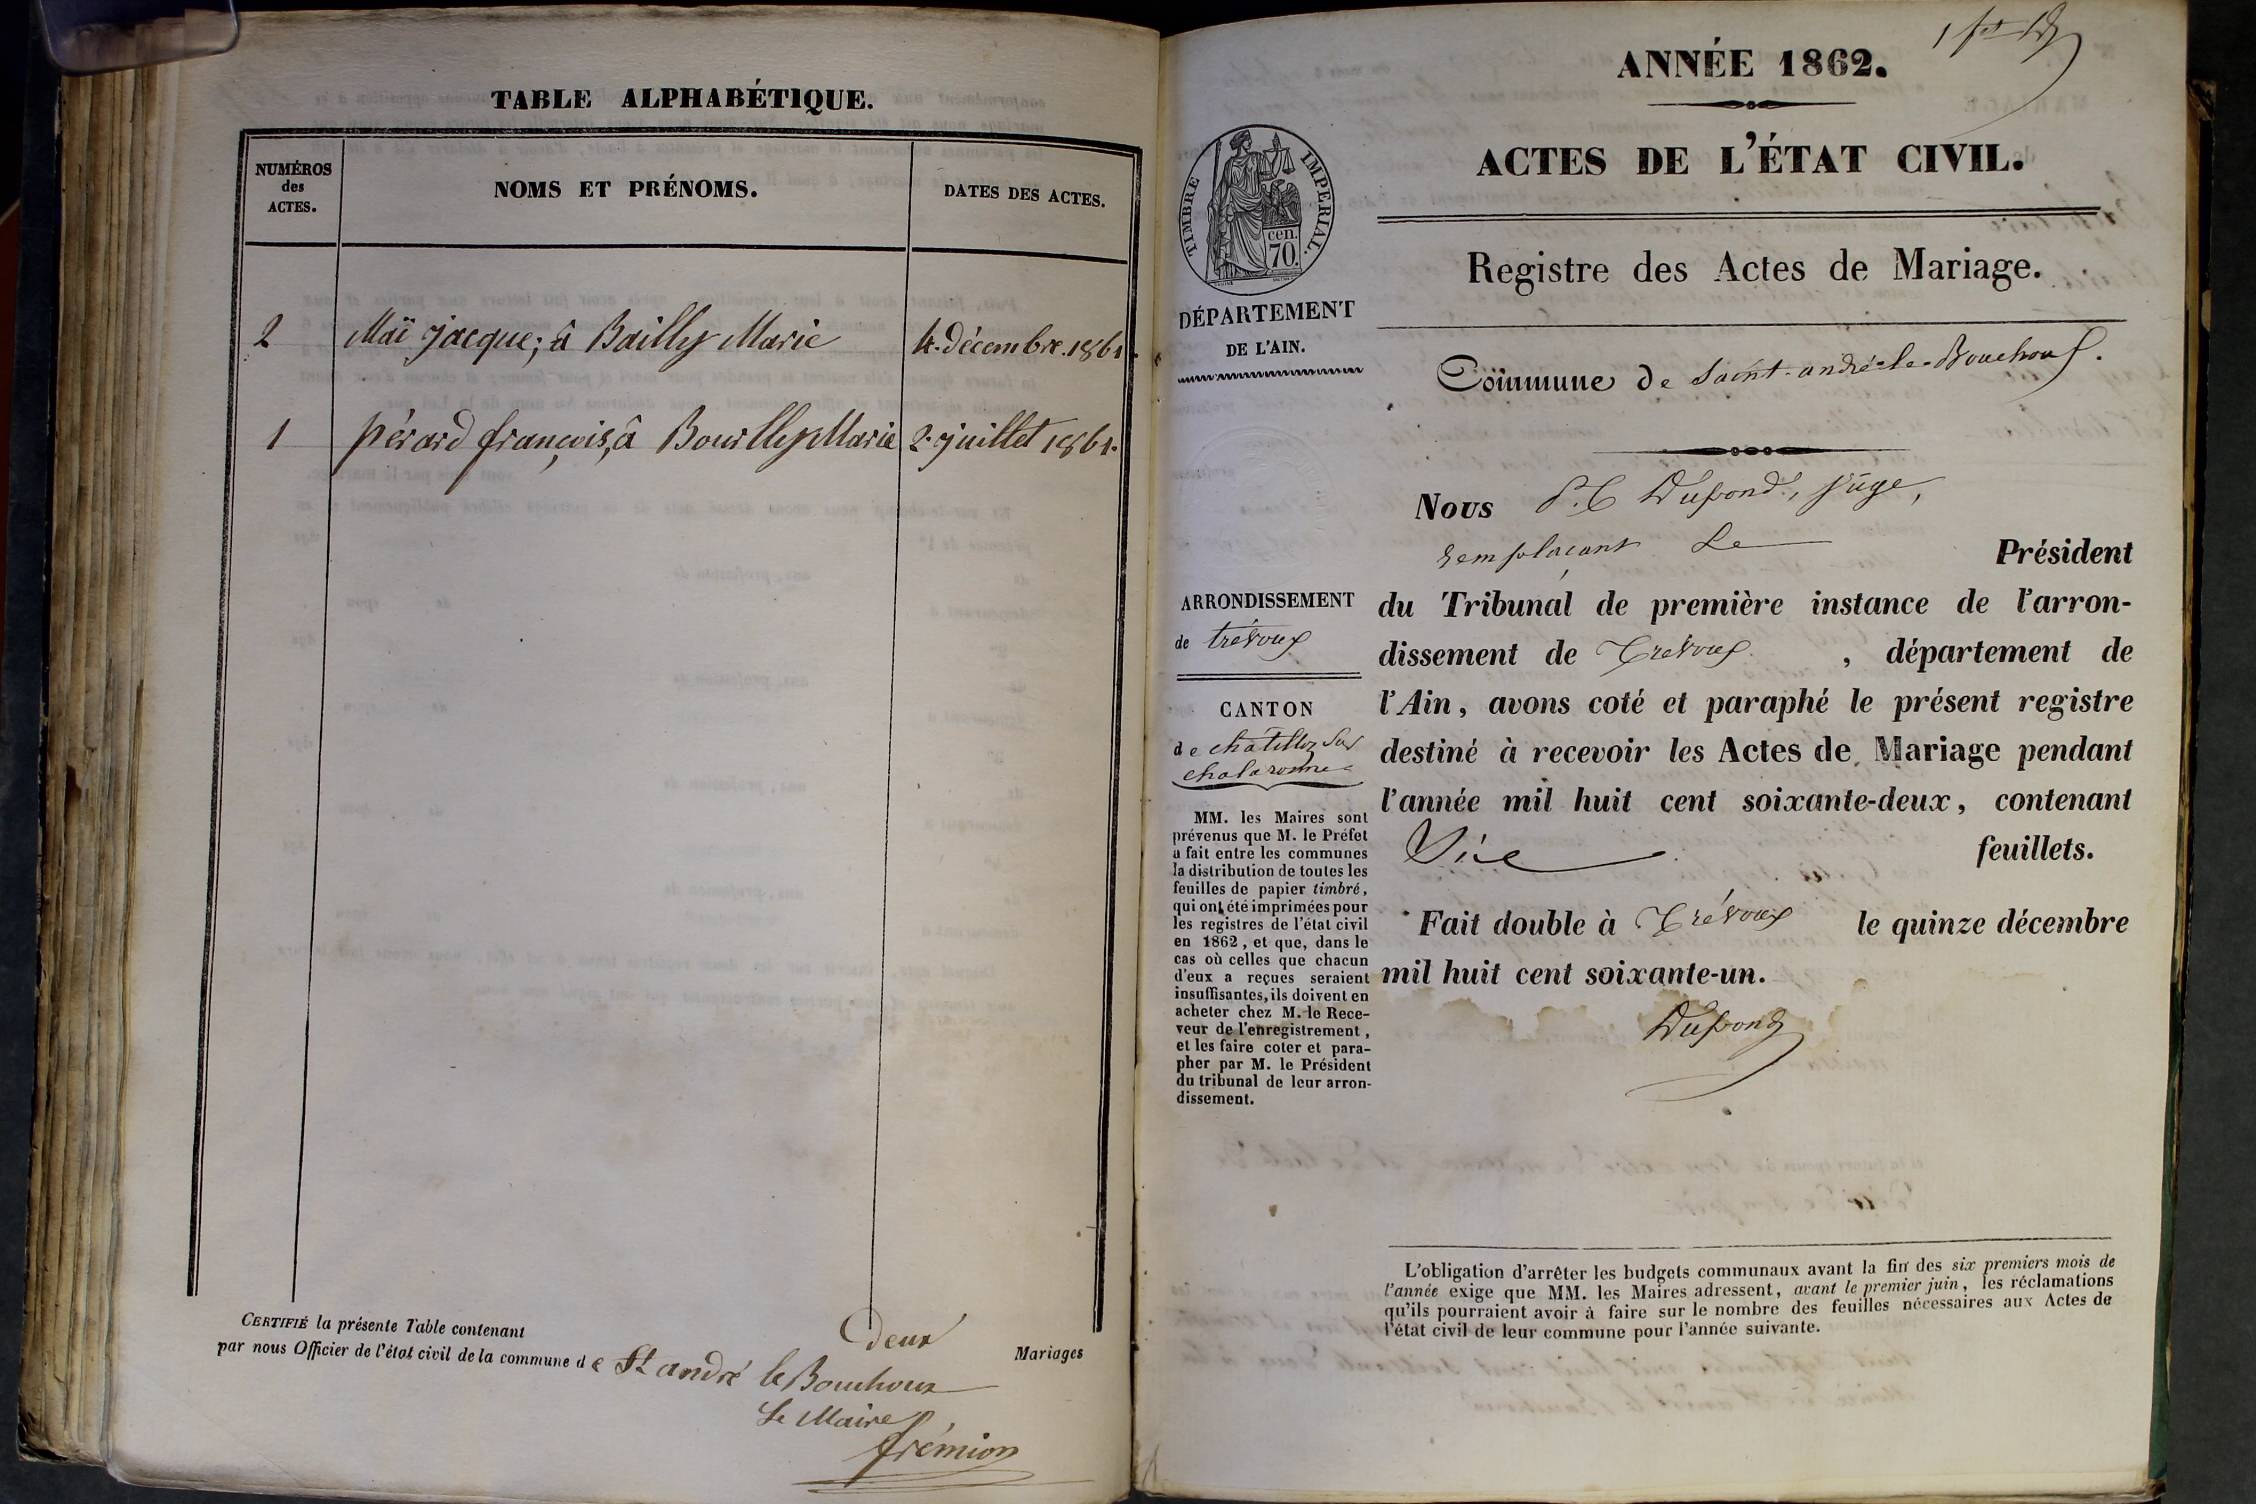 TABLE ALPHABÉTIQUE.
NUMÉROS
des
ACTES.
NOMS ET PRÉNOMS.
DATES DES ACTES.
2 Maï jacque; à Bailly Marie 4. décembre. 1861.
1 pérard françois, à Bourlley Marie 2. juillet 1861.
CERTIFIÉ la présente Table contenant deux Mariages
par nous Officier de l'état civil de la commune de St andré le Bouchoux
Le Maire,
frémion
ANNÉE 1862.
ACTES DE L'ÉTAT CIVIL.
Registre des Actes de Mariage.
Commune de Saint-andré-le-Bouchoux.
TIMBRE IMPÉRIAL.
cen.
70.
DÉPARTEMENT
DE L'AIN.
ARRONDISSEMENT
de trévoux
CANTON
de chatillon sur
chalaronne
MM. les Maires sont
prévenus que M. le Préfet
a fait entre les communes
la distribution de toutes les
feuilles de papier timbré,
qui ont été imprimées pour
les registres de l'état civil
en 1862, et que, dans le
cas où celles que chacun
d'eux a reçues seraient
insuffisantes, ils doivent en
acheter chez M. le Rece-
veur de l'enregistrement,
et les faire coter et para-
pher par M. le Président
du tribunal de leur arron-
dissement.
Nous P. C Dupond, juge,
remplaçant Le Président
du Tribunal de première instance de l'arron-
dissement de Trévoux, département de
l'Ain, avons coté et paraphé le présent registre
destiné à recevoir les Actes de Mariage pendant
l'année mil huit cent soixante-deux, contenant
feuillets.
Fait double à Trévoux le quinze décembre
mil huit cent soixante-un.
Dupond
L'obligation d'arrêter les budgets communaux avant la fin des six premiers mois de
l'année exige que MM. les Maires adressent, avant le premier juin, les réclamations
qu'ils pourraient avoir à faire sur le nombre des feuilles nécessaires aux Actes de
l'état civil de leur commune pour l'année suivante.